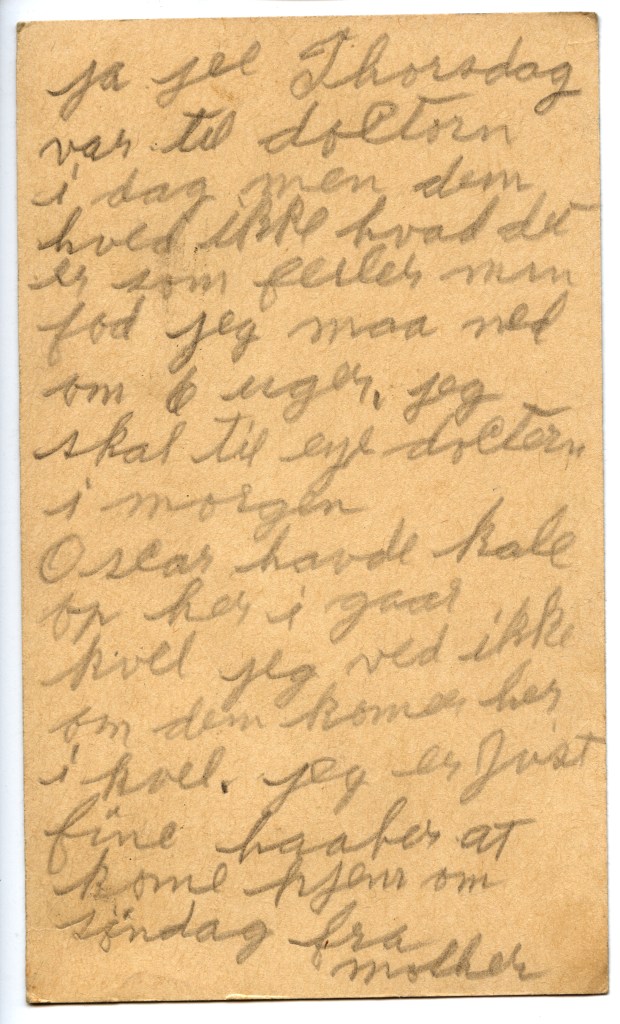 ja jee Thorsdag
var til doctorn
i dag men dem
hved ikke hvad det
er som feiler min
fod jeg maa ned
om 6 uger, jeg
skal til eye doctern
i morgen
Oscar havde kale
op her i gaar
kvel jeg ved ikke
om dem komer her
i kvel. jeg er Just
fine haaber at
kome hjem om
søndag fra
mother